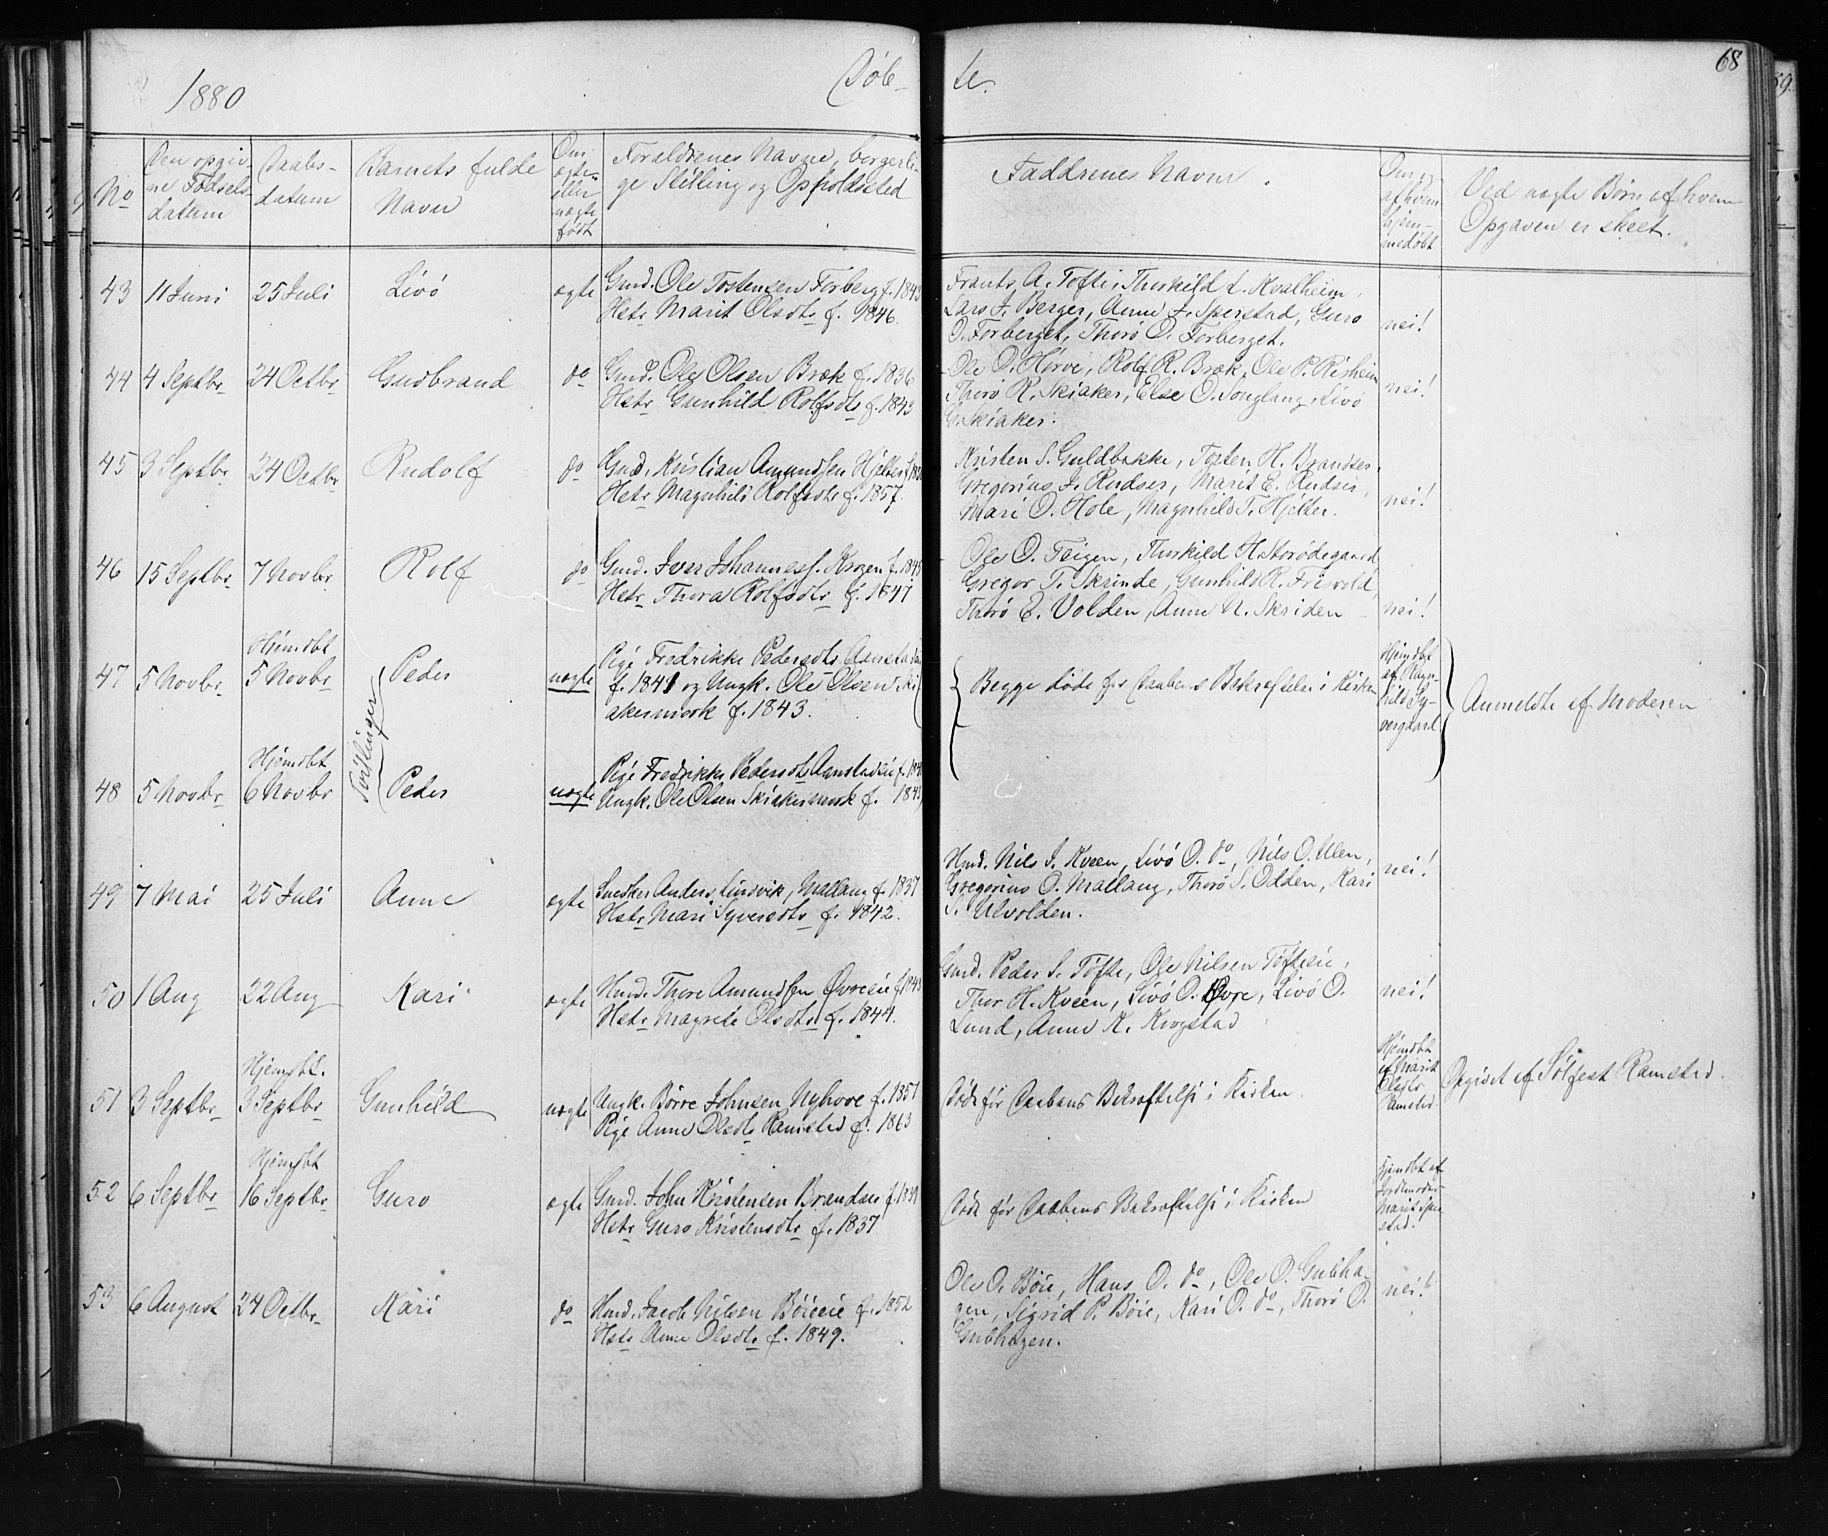 1880
Døb-
te.
68
No
Den opgiv-
ne Fødsels-
datum
Daabs-
datum
Barnets fulde
Navn
Om
ægte
eller
uægte
født
Forældrenes Navne, borgerli-
ge Stilling og Opholdssted
Faddrenes Navne.
Om og
af hvem
hjem-
medøbt
Ved uægte Børn af hvem
Opgaven er skeet.
43 11 Juni 25 Juli Livó ægte Gmd. Ole Tostensen Forberg f. 1843
Hstr Marit Olsdtr f. 1846.
Frants A. Tofte, Thorkild L. Kvalheim,
Lars J. Berger, Anne J. Sperstad, Guro
O. Forberget, Thorø O. Forberget.
nei!
44 4 Septbr 24 Octbr Gudbrand do Gmd. Ole Olsen Bræk f. 1836
Hstr Gunhild Rolfsdtr f. 1843
Ole O. Hørve, Rolf R. Bræk, Ole P. Risheim
Thorø R. Skiaker, Else O. Songlang, Livó
G. Skiaker.
nei!
45 3 Septbr 24 Octbr Rudolf do Gmd. Kristian Amundsen Hjelter
Hstr Magnhild Rolfsdtr f. 1857.
Kristen S. Guldbakke, Tosten H. Brandser,
Gregorius J. Rudser, Marit E. Rudser,
Mari O. Hole, Magnhild T. Hjelter.
nei!
46 15 Septbr 7 Novbr Rolf do Gmd. Iver Johanness. Krogen f. 1843
Hstr Thora Rolfsdtr f. 1847
Ole O. Teigen, Thorkild H. Storødegaard,
Gregor T. Skrinde, Gunhild R. Frisvold,
Thorø E. Volden, Anne N. Skriden
nei!
47 5 Novbr Hjemdbt
5 Novbr Peder uægte Pige Fredrikke Pedersdtr Aanstadeie
f. 1841 og Ungk. Ole Olsen Ski-
akermork f. 1843.
Begge døde før Daabens Bekræftelse i Kirken
Hjemdbt
af Magn-
hild Sy-
vergaard
Anmeldte af Moderen
Tvillinger
48 5 Novbr Hjemdbt
6 Novbr Peder uægte Pige Fredrikke Pedersdtr Aanstadeie f. 1841
Ungk. Ole Olsen Skiakermork f. 1843
49 7 Mai 25 Juli Anne ægte Snedker Anders Linsvik, Mallang f. 1837
Hstr Mari Syversdtr f. 1842.
Hmd. Nils J. Kveen, Livó O. do, Nils O. Ulen,
Gregorius O. Mallang, Thorø S. Odden, Kari
S. Ulvolden.
nei!
50 1 Aug 22 Aug Kari ægte Hmd. Thore Amundsen Øvreeie f. 1843
Hstr Magrete Olsdtr f. 1844.
Gmd. Peder S. Tofte, Ole Nilsen Tofteeie,
Thor H. Kveen, Livó O. Øvre, Livó O.
Lund, Anne K. Krogstad
nei!
51 3 Septbr Hjemdbt.
3 Septbr Gunhild uægte Ungk. Børre Johnsen Nyhove f. 1851
Pige Anne Olsdtr Ramstad f. 1863
Døde før Daabens Bekræftelse i Kirken.
Hjemdbt
af Marit
Olsdtr
Ramstad.
Opgivet af Sølfest Ramstad.
52 6 Septbr Hjemdbt
16 Septbr Guro ægte Gmd. John Kristensen Brandser f. 1839
Hstr Guro Kristensdtr f. 1837
Døde før Daabens Bekræftelse i Kirken
Hjemdbt af
Jordemoder
Marit Sper-
stad.
53 6 August 24 Octbr Kari do Hmd. Jacob Nilsen Böieeie f. 1852
Hstr Anne Olsdtr f. 1849.
Ole O. Böie, Hans O. do, Ole O. Gubha-
gen, Sigrid P. Böie, Kari O. do, Thorø O.
Gubhagen.
nei!